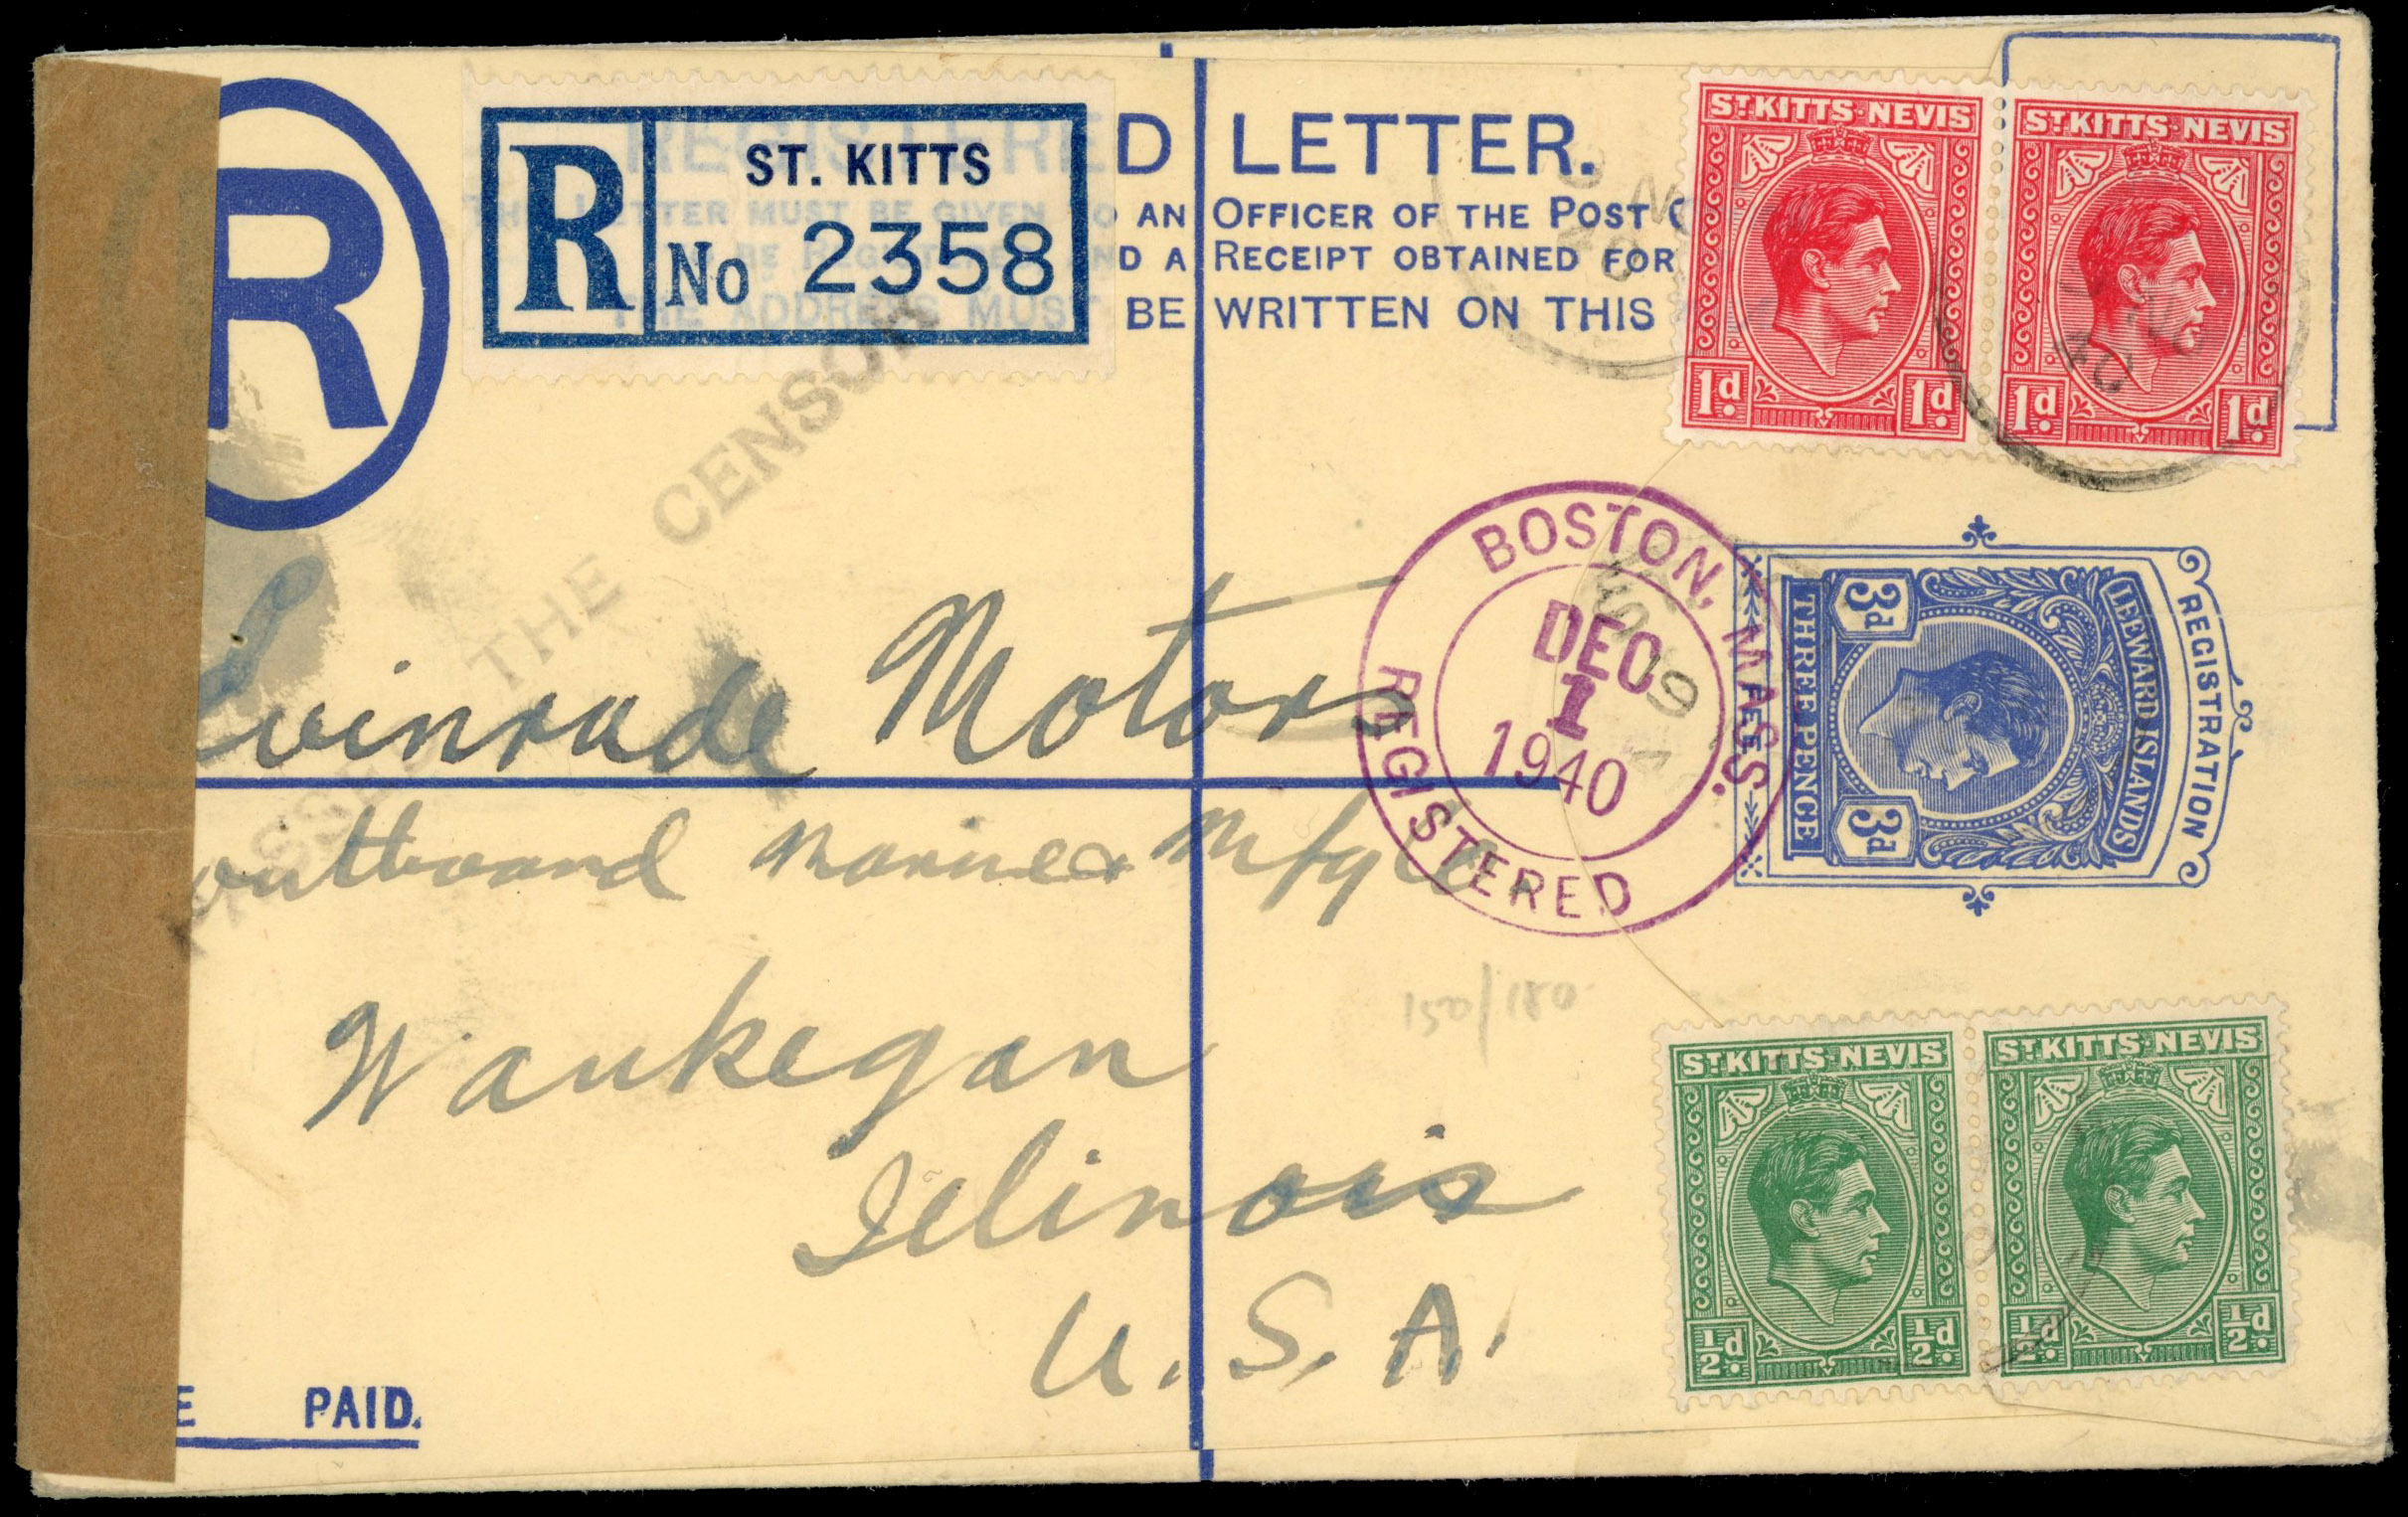 R
R
ST. KITTS
No 2358
REGISTERED LETTER.
THE LETTER MUST BE GIVEN TO AN OFFICER OF THE POST
BE REGISTERED AND A RECEIPT OBTAINED FOR
THE ADDRESS MUST BE WRITTEN ON THIS
ST KITTS·NEVIS
1d
1d
ST KITTS·NEVIS
1d
1d
40
40
PASSED THE CENSOR
BOSTON, MASS.
DEC
1
1940
REGISTERED
REGISTRATION
LEEWARD ISLANDS
3d
3d
THREE PENCE
FEE
Evinrude Motors
Outboard Marine & Mfg Co.
Waukegan
Illinois
U.S.A.
150/180
ST KITTS·NEVIS
½d
½d
ST KITTS·NEVIS
½d
½d
E PAID.